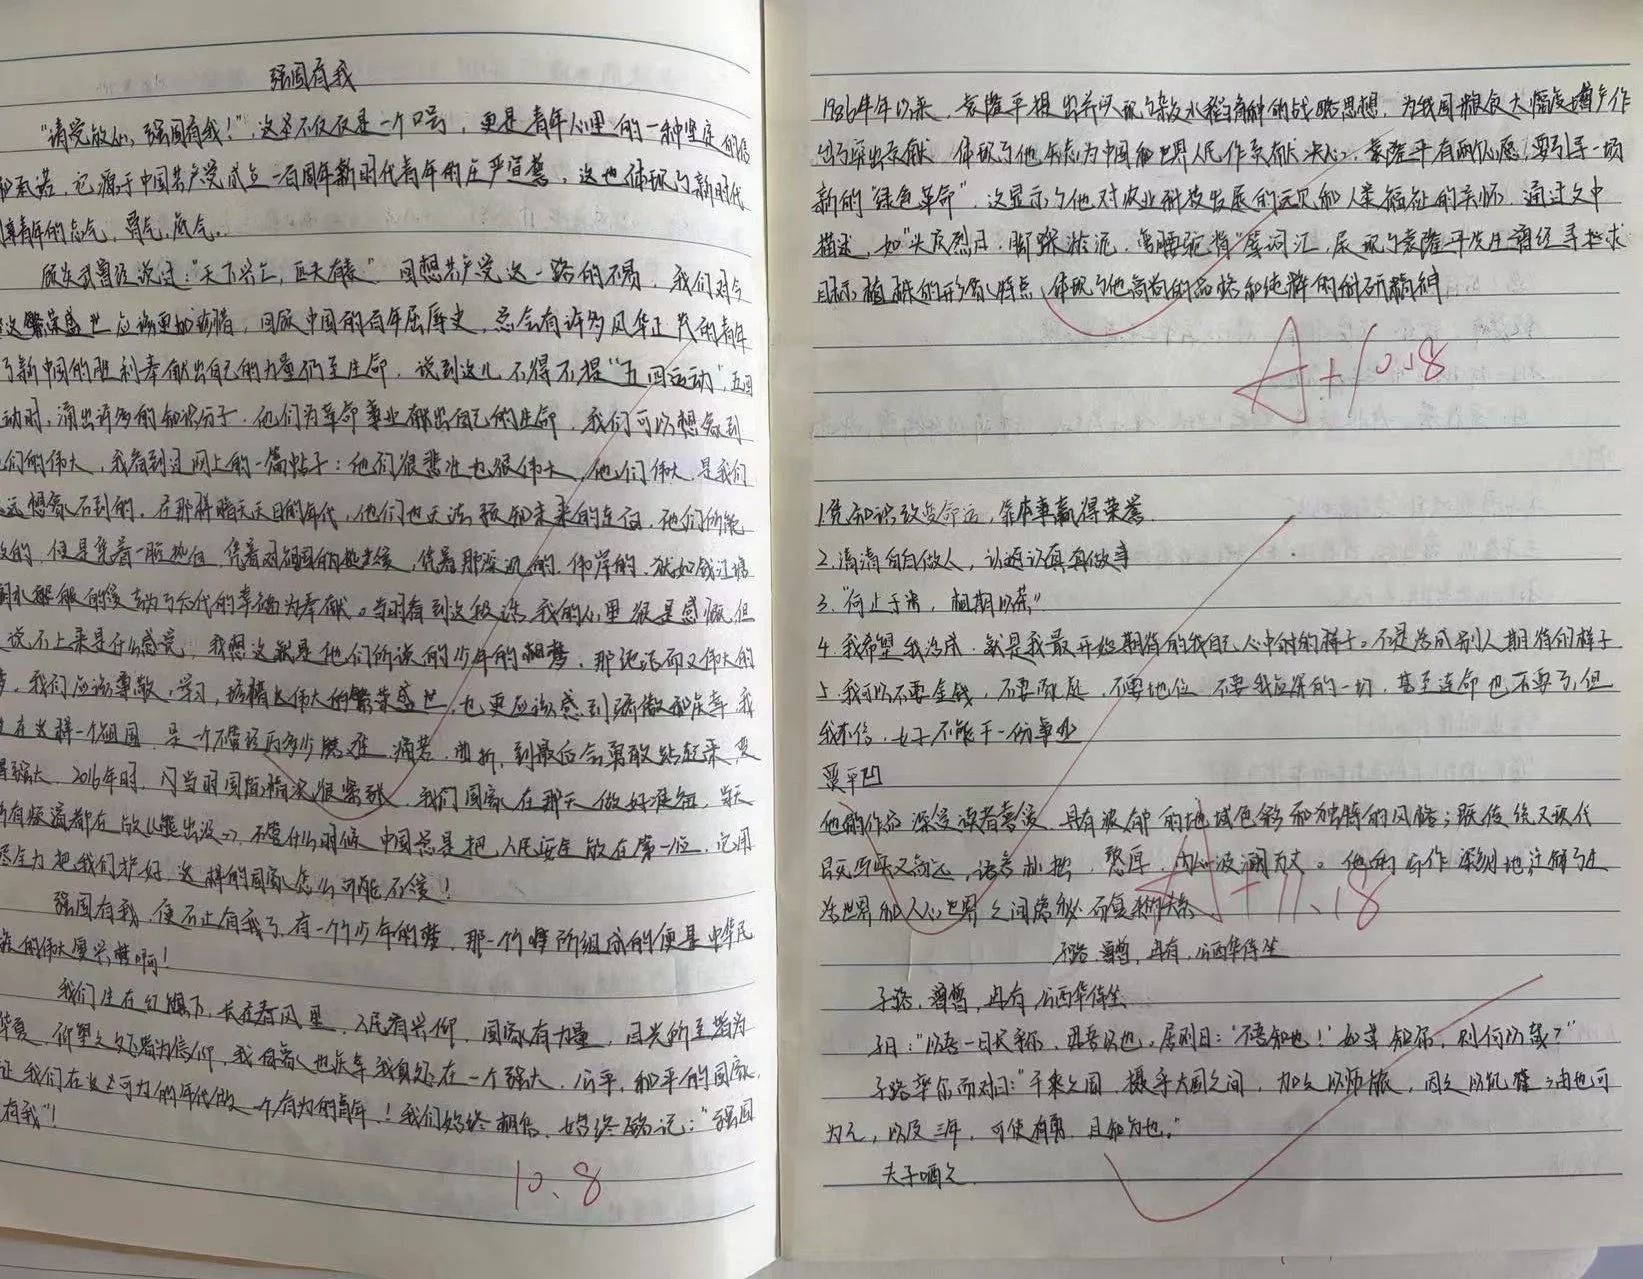 强国有我
“请党放心，强国有我！”，这不仅仅是一个口号，更是青年心里的一种坚定的信
和承诺，它源于中国共产党成立一百周年新时代青年的庄严宣誓，这也体现了新时代
青年的志气，骨气，底气。
顾炎武曾经说过：“天下兴亡，匹夫有责” 回想共产党这一路的不易，我们对今
这繁荣盛世应该更加珍惜，回顾中国的百年屈辱史，总会有许多风华正茂的青年
了新中国的胜利奉献出自己的力量仍至生命，说到这儿不得不提“五四运动”，五四
动时，涌出许多的知识分子，他们为革命事业献出自己的生命，我们可以想象到
们的伟大，我看到过网上的一篇帖子：他们很悲壮也很伟大，他们伟大是我们
远想象不到的，在那样暗无天日的年代，他们也无法预知未来的走向，他们所能
的，但是凭着一腔热血，凭着对祖国的热爱，凭着那深沉的，伟岸的，犹如钱江塘
为了后代的幸福为奉献。当时看到这段话，我的心里很是感慨，但
说不上来是什么感觉，我想这就是他们所谈的少年的，那 而又伟大的
梦，我们应该尊敬，学习，珍惜这伟大的繁荣盛世，也更应该感到骄傲和庆幸，我
在这样一个祖国，是一个不管经历多少磨难，痛苦，曲折，到最后会勇敢站起来，变
强大，2016年时，当时国际情况很紧张，我们国家在那天做好准备，当天
所有频道都在放《熊出没》，不管什么时候中国总是把人民安全放在第一位，它用
尽全力把我们护好，这样的国家怎么可能不爱！
强国有我，便不止有我了，有一个个少年的梦，那一个个梦所组成的便是中华民
族的伟大复兴梦啊！
我们生在红旗下，长在春风里，人民有信仰，国家有力量，目光所至皆为
华夏，仰望之处皆为信仰，我自豪也庆幸我身处在一个强大，公平，和平的国家，
让我们在大可为的年代做一个有为的青年！我们始终相信，始终铭记：“强国
有我”！
10.8
1986年年以来，袁隆平提出并实现了杂交水稻育种的战略思想，为我国粮食大幅度增产作
出了突出贡献 体现了他矢志为中国和世界人民作贡献决心，袁隆平有两个心愿，要引导一场
新的“绿色革命”，这显示了他对农业科技发展的远见和人类福祉的关怀，通过文中
描述，如“头顶烈日，脚踩淤泥，弯腰驼背”等词汇，展现了袁隆平先生曾经寻找求
目标植株的形象特点，体现了他高尚的品格和纯粹的科研精神
A+10.18
1.凭知识改变命运，靠本事赢得荣誉
2.清清白白做人，认认真真做事
3.“何止于米，相期以茶”
4.我希望我活成，就是我最开始期待的我自己心中的样子。不是活成别人期待的样子
5.我可以不要金钱，不要家庭，不要地位 不要我应得的一切，甚至连命也不要了，但
我不信，女子不能干一份事业
贾平凹
他的作品深受读者喜爱，具有浓郁的地域色彩和独特的风格；既传统又现代
既写实又高远，语言朴拙，憨厚，内心波澜万丈。他的写作深刻地注解了这
世界和人心世界之间
A+11.18
子路，曾皙，冉有，公西华侍坐
子路，曾皙，冉有，公西华侍坐
子曰：“以吾一日长乎尔，毋吾以也。居则曰：‘不吾知也！’如或知尔，则何以哉？”
子路率尔而对曰：“千乘之国，摄乎大国之间，加之以师旅，因之以饥馑；由也可
为之，以及三年，可使有勇，且知方也。”
夫子哂之